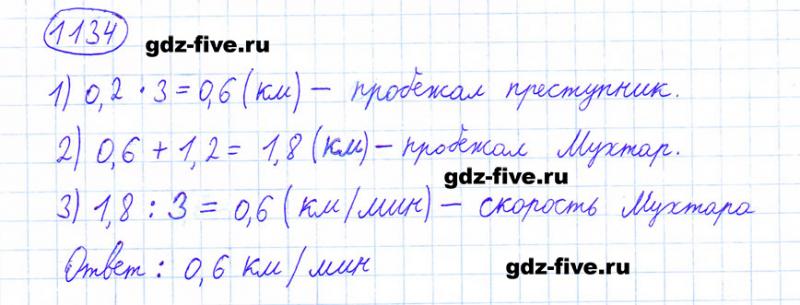 1134
gdz-five.ru
1) 0,2 · 3 = 0,6 (км) – пробежал преступник.
2) 0,6 + 1,2 = 1,8 (км) – пробежал Мухтар.
gdz-five.ru
3) 1,8 : 3 = 0,6 (км/мин) – скорость Мухтара
Ответ : 0,6 км/мин
gdz-five.ru